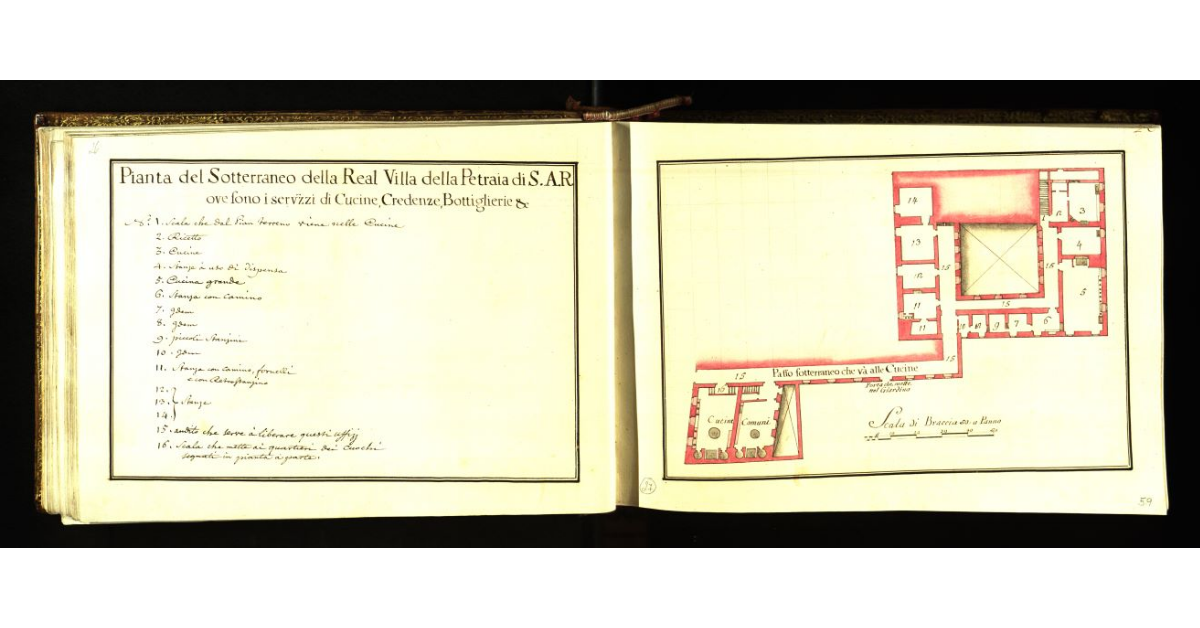 Pianta del Sotterraneo della Real Villa della Petraia di S.A.R.
ove sono i servizzi di Cucine, Credenze, Bottiglierie &c
N.º 1. Scala che dal Pian terreno viene nelle Cucine
2. Ricetto
3. Cucine
4. Stanza à uso di dispensa
5. Cucina grande
6. Stanza con camino
7. Idem
8. Idem
9. piccoli Stanzini
10. Idem
11. Stanza con camino, fornelli
e con Retrostanzino
12.
13. Stanze
14.
15. andito che serve à liberare questi uffizj
16. Scala che mette ai quartieri dei Cuochi
segnati in pianta a parte.
14
2
3
13
4
15
16
12
5
11
15
11
10
9
7
6
15
Passo sotterraneo che và alle Cucine
15
Porta che mette
nel Giardino
10
Cucine
Comuni
Scala di Braccia 40. a Panno
37
59